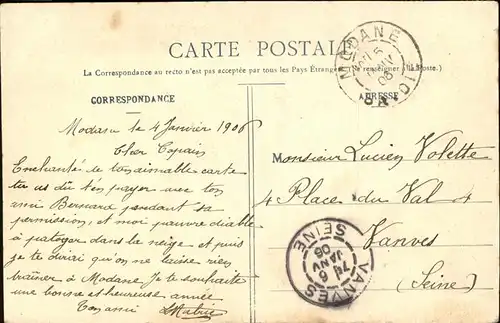 CARTE POSTALE
La Correspondance au recto n'est pas acceptée par tous les Pays Étrangers (Se renseigner à la Poste.)
CORRESPONDANCE
ADRESSE
Modane le 4 Janvier 1906
Cher Copain
Enchanté de ton aimable carte
tu as dû t'en payer avec ton
ami Bernard pendant sa
permission, et moi pauvre diable
à patoger dans la neige et puis
je te dirai qu'on ne laisse rien
traîner à Modane Je te souhaite
une bonne et heureuse année
Ton ami
Monsieur Lucien Volette
4 Place du Val 4
Vanves
(Seine)
MODANE
5
JANV
06
VANVES
6
JANV
06
SEINE